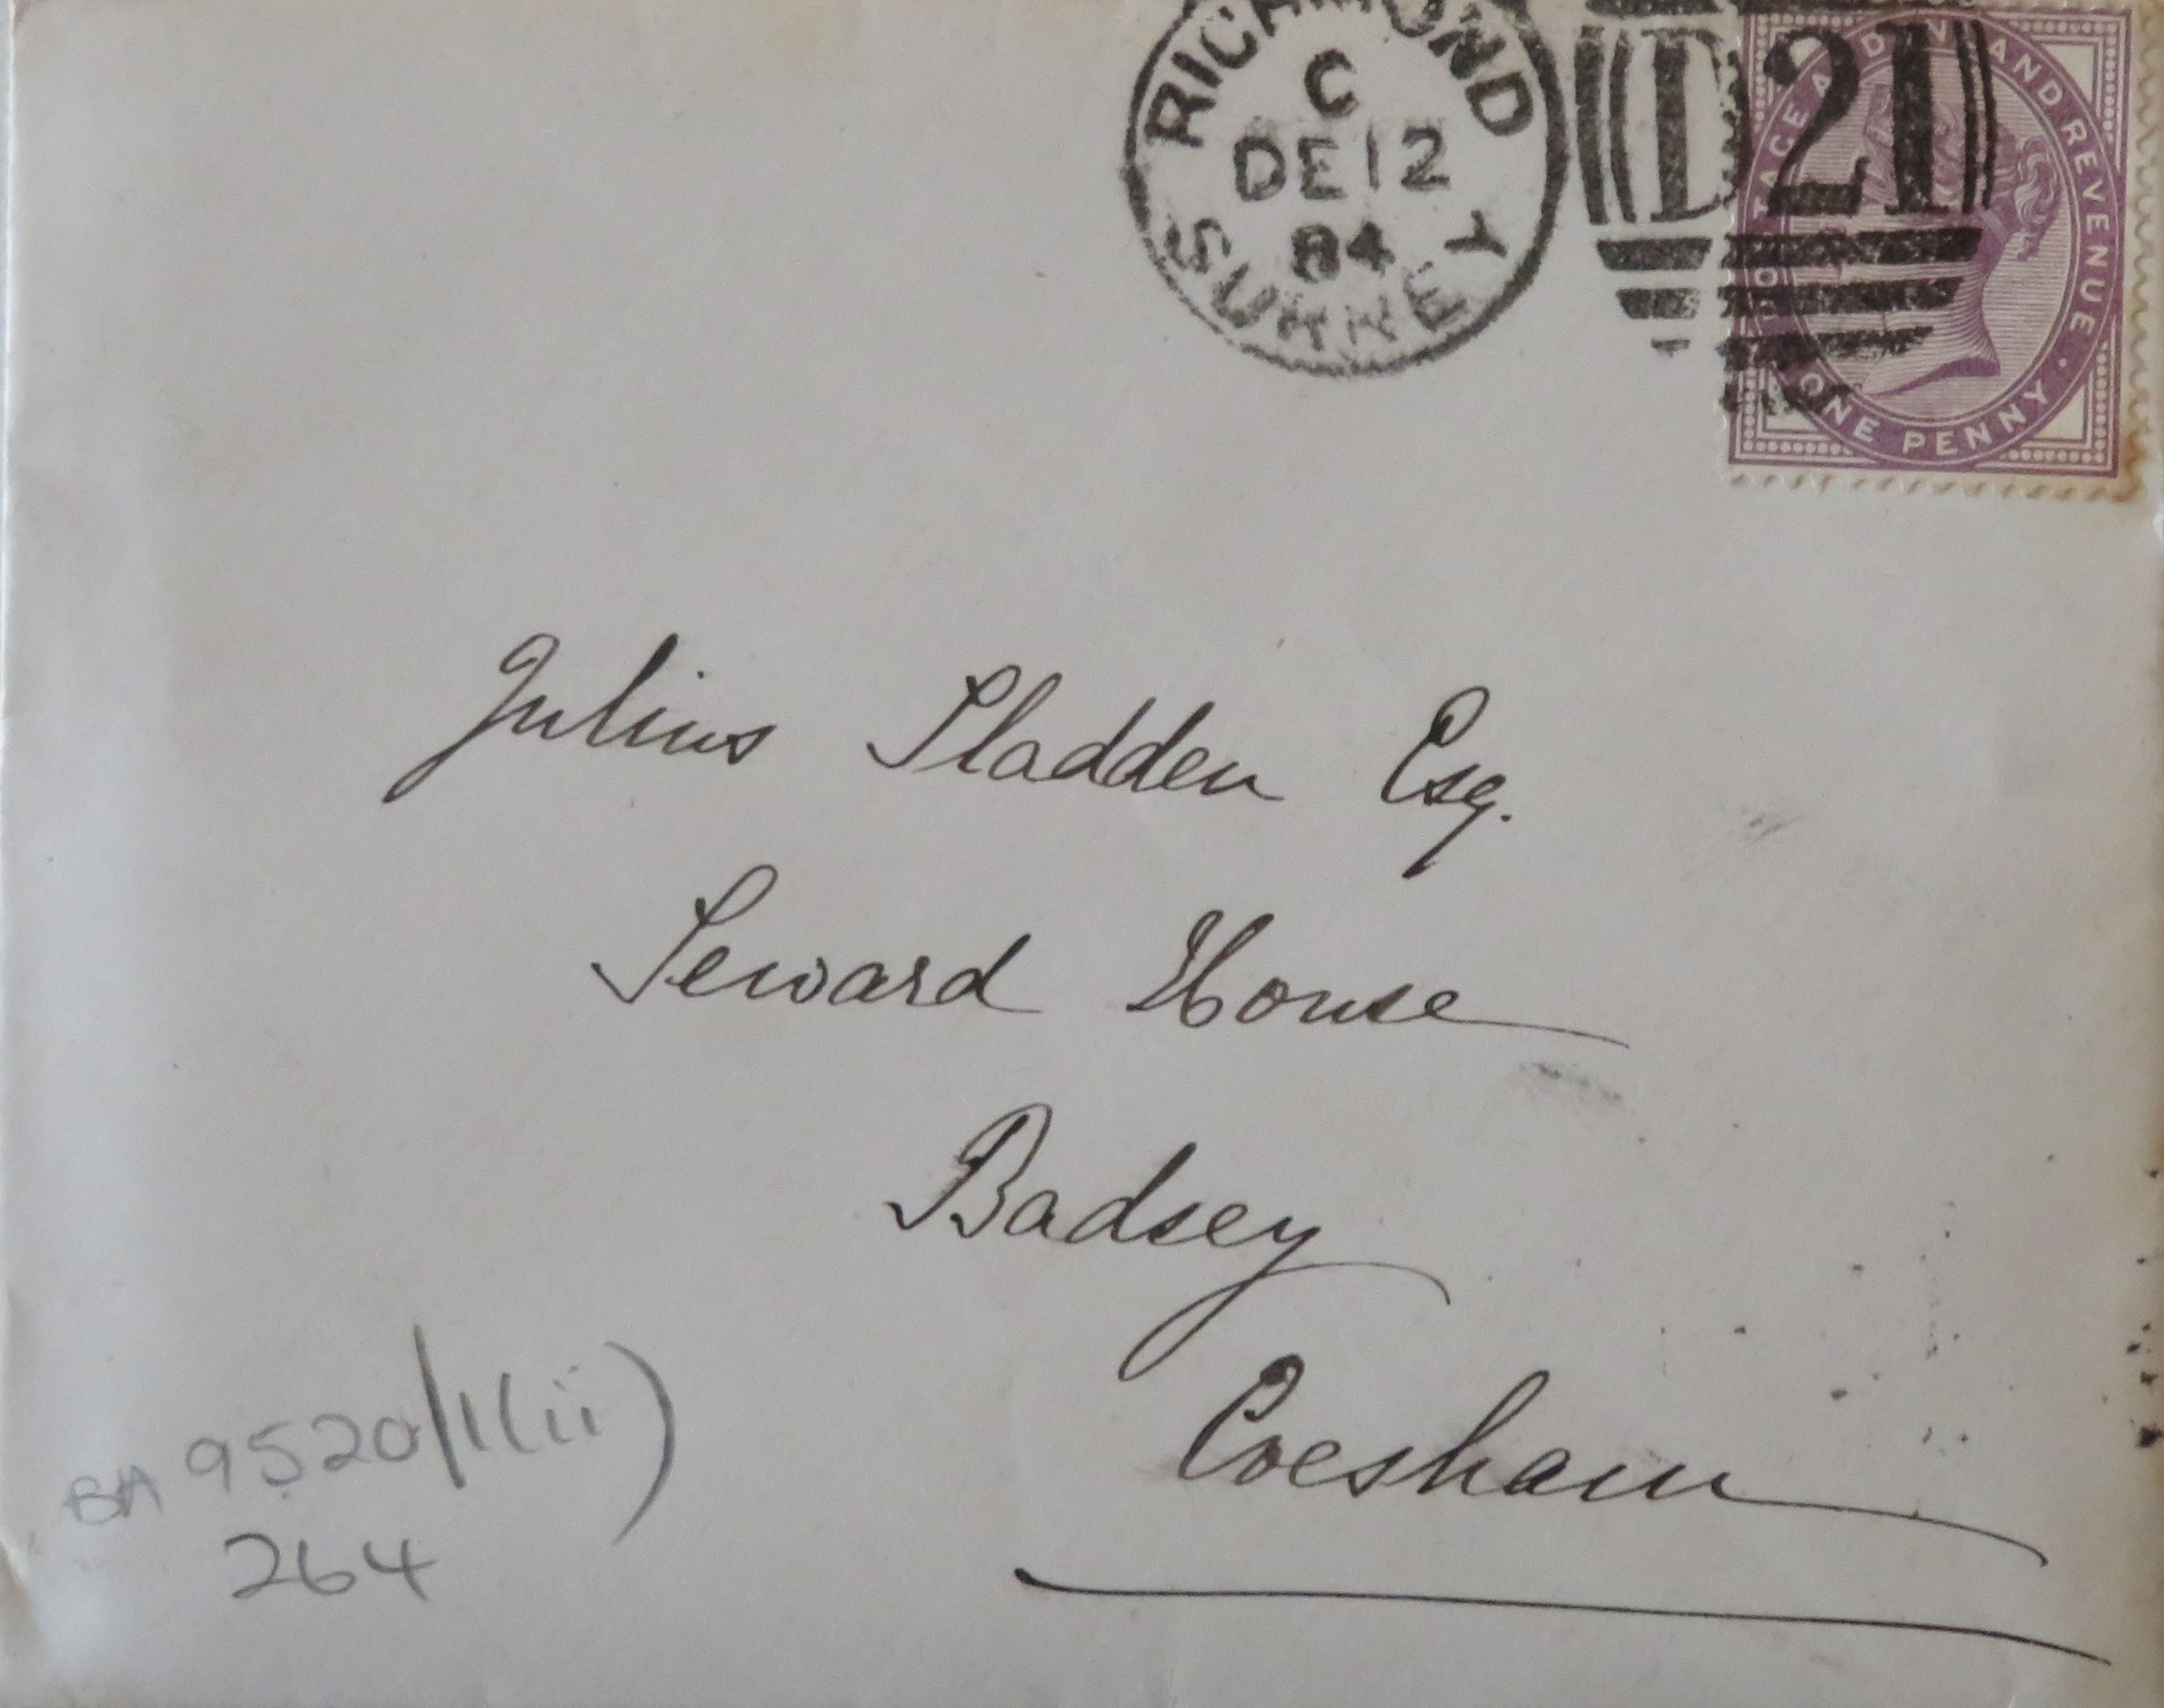 RICHMOND
C
DE 12
84
SURREY
D21
POSTAGE AND INLAND REVENUE · ONE PENNY ·
Julius Sladden Esq.
Seward House
Badsey
Evesham
BA 9520/1(ii)
264